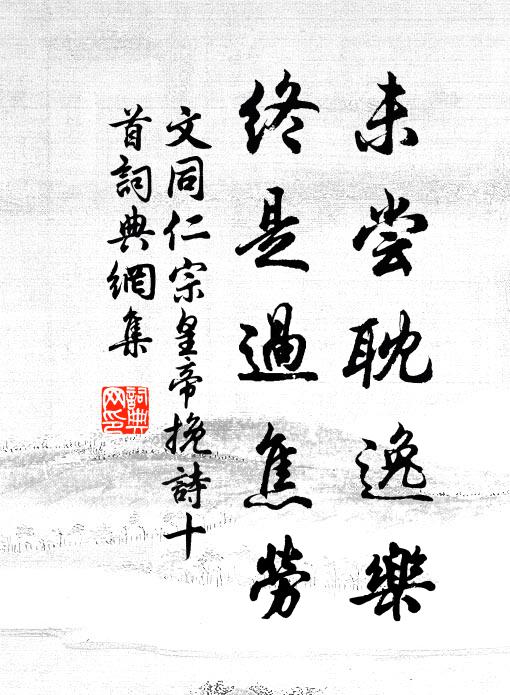 未尝耽逸樂
終是過焦勞
文同仁宗皇帝挽詩十
首詞典網集
詞典
网印